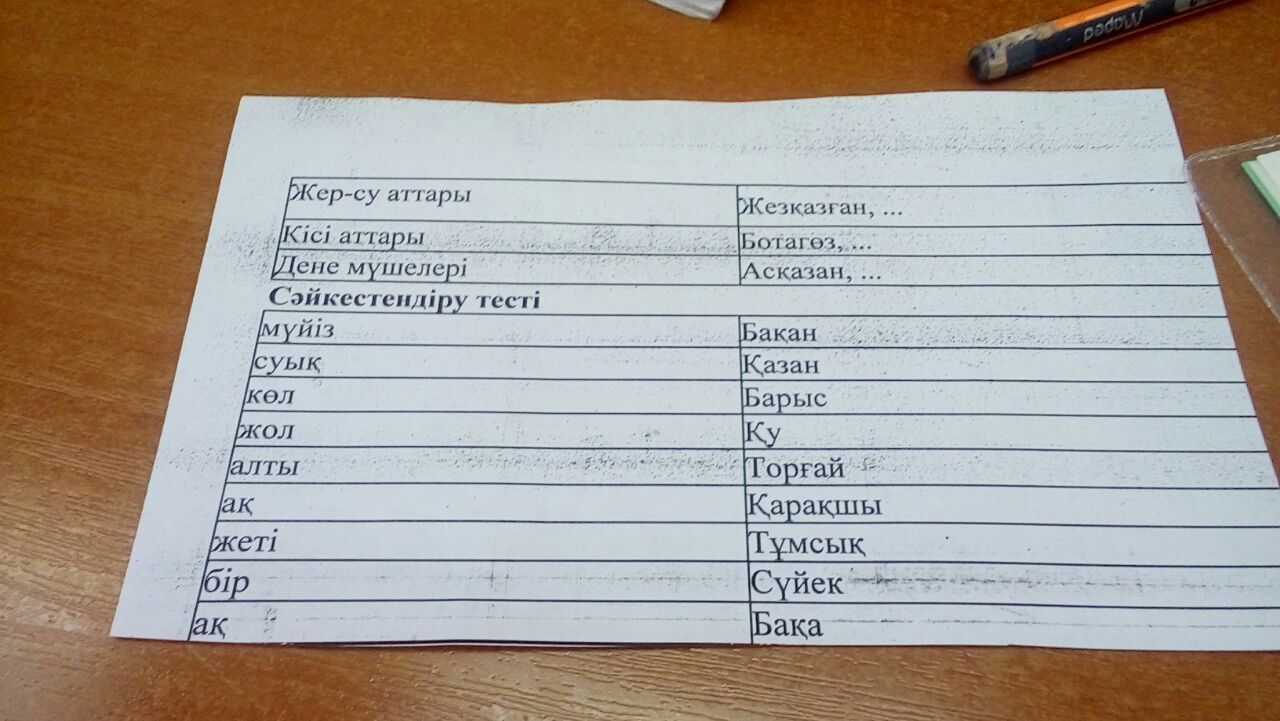 Maped
Жер-су аттары Жезқазған, ...
Кісі аттары Ботагөз, ...
Дене мүшелері Асқазан, ...
Сәйкестендіру тесті
мүйіз Бақан
суық Қазан
көл Барыс
жол Қу
алты Торғай
ақ Қарақшы
жеті Тұмсық
бір Сүйек
ақ Бақа